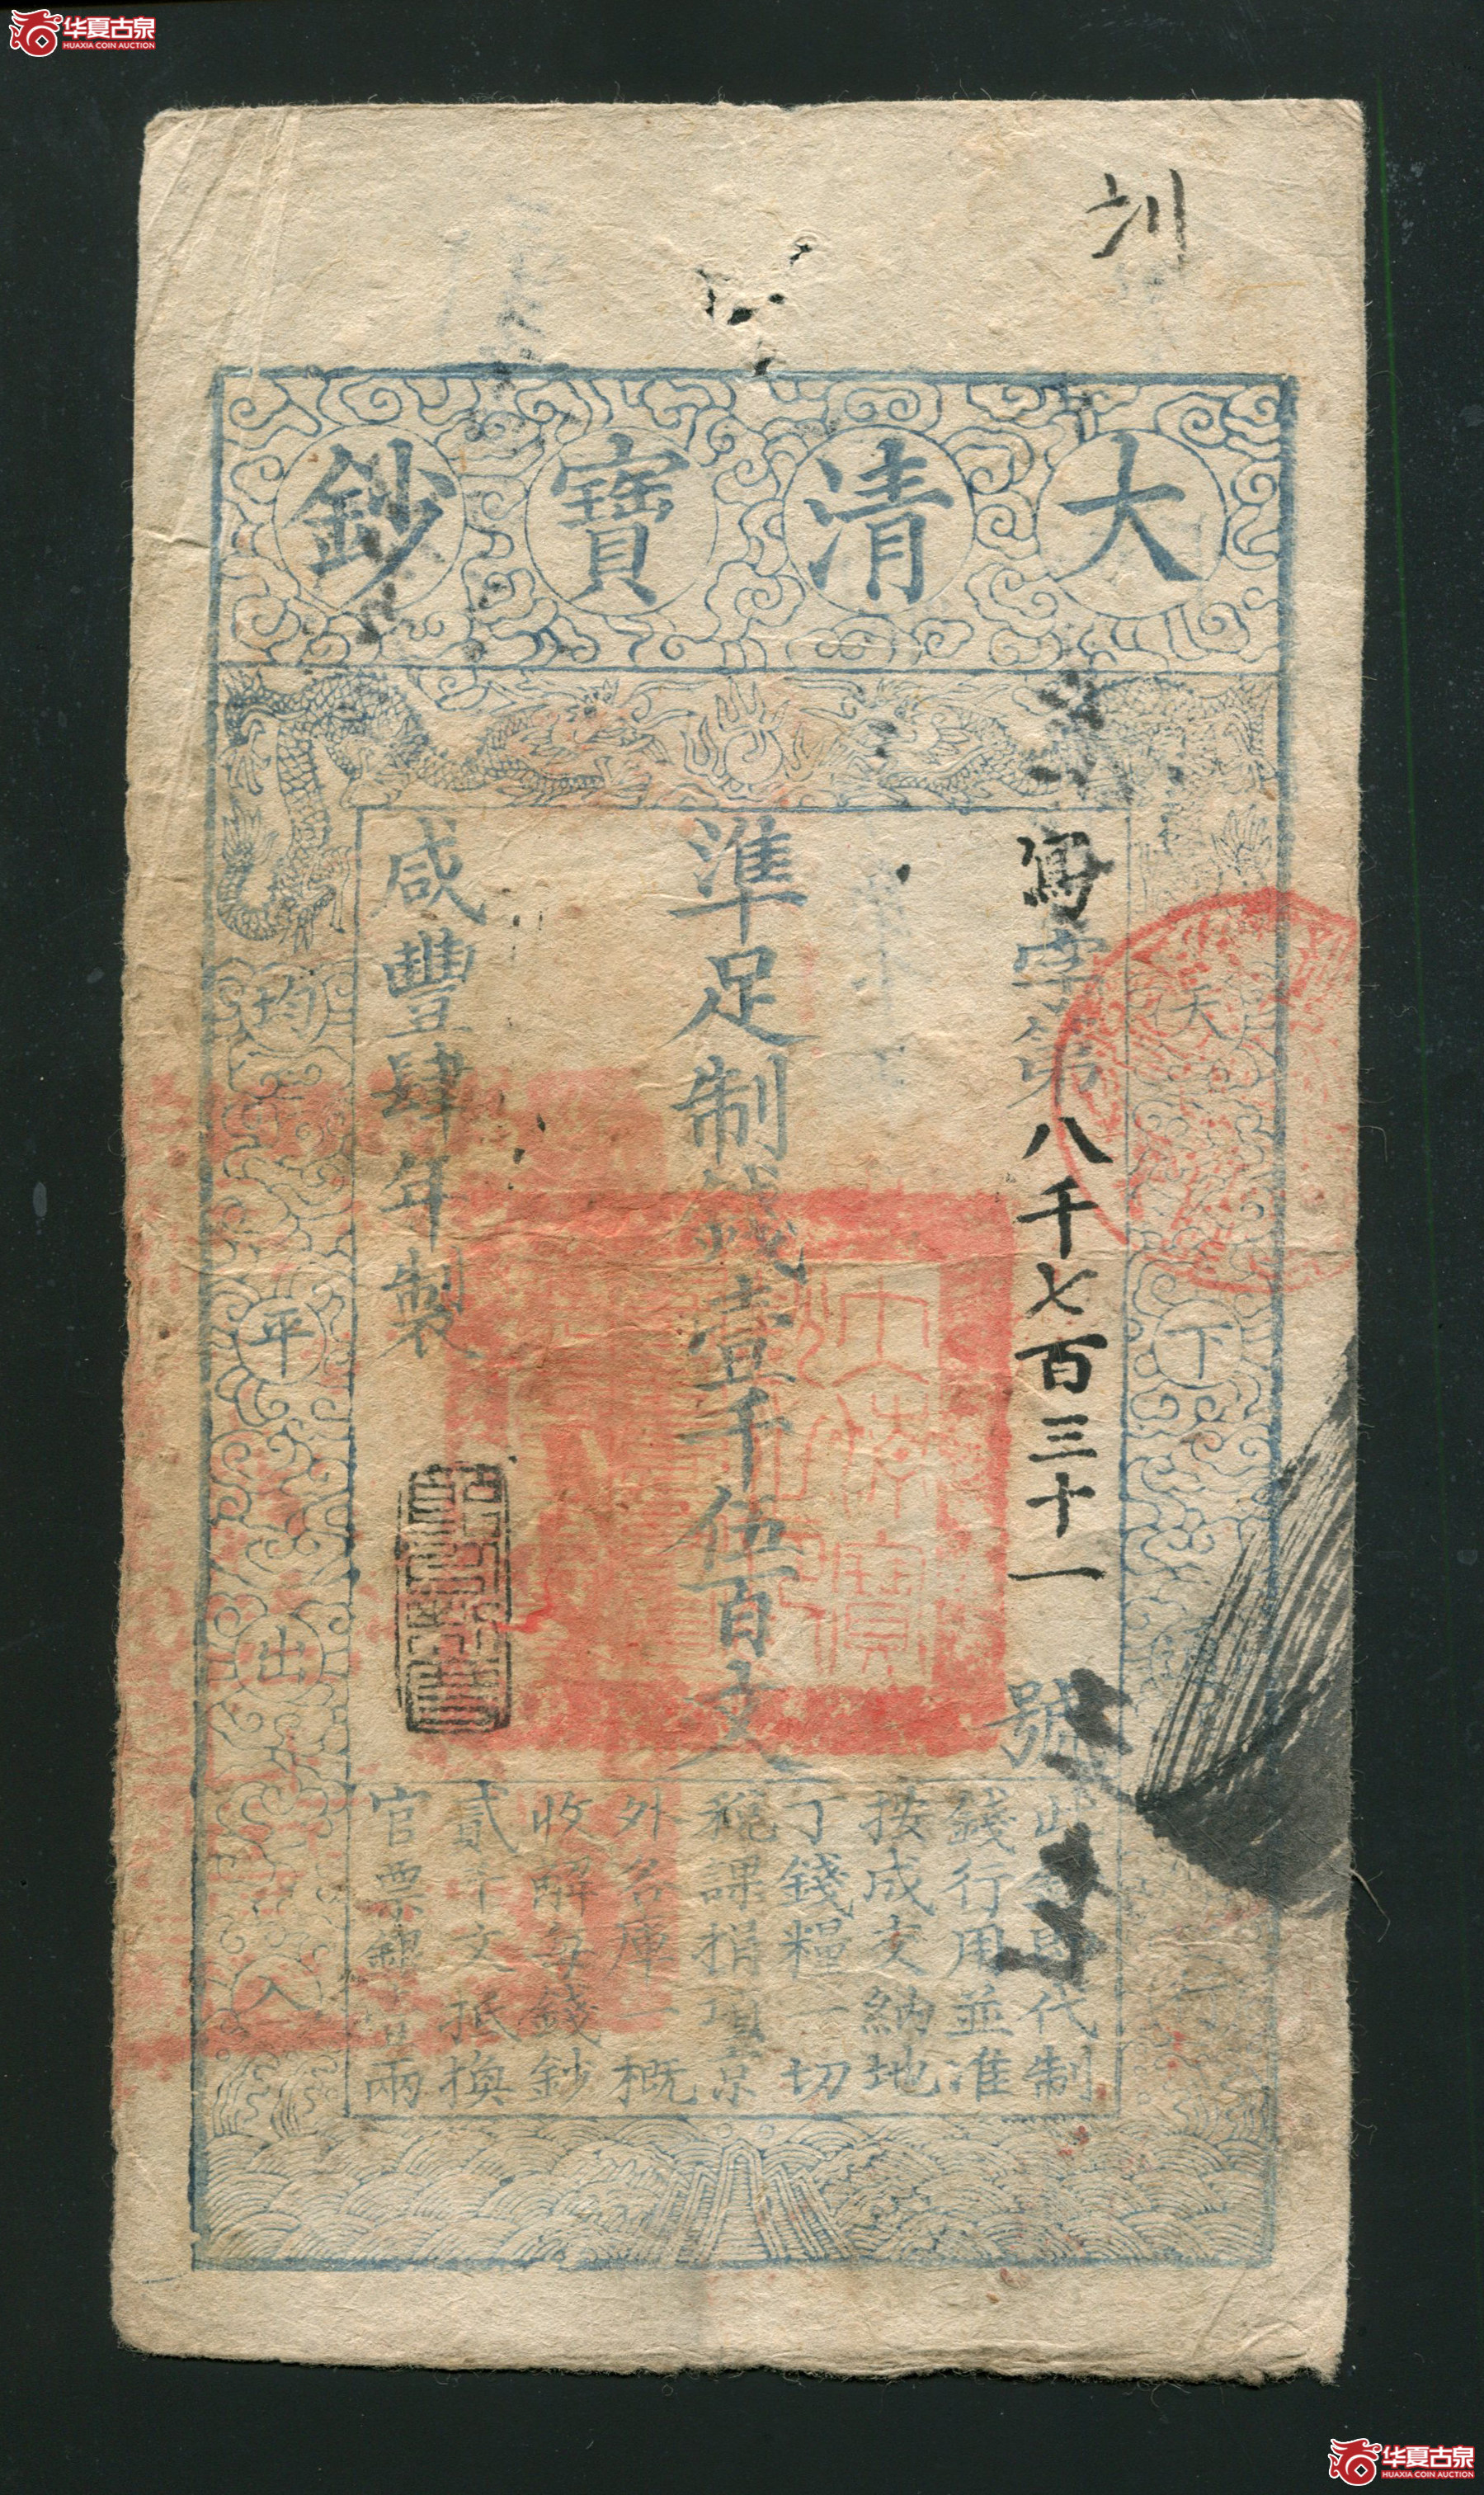 华夏古泉
HUAXIA COIN AUCTION
大清寶鈔
天下
均平出入
寫字第八千七百三十一號
準足制錢壹千伍百文
咸豐肆年製
此鈔即代制
錢行用並准
按成交納地
丁錢糧一切
稅課捐項京
外各庫一概
收解每錢鈔
貳千文抵換
官票銀壹兩
华夏古泉
HUAXIA COIN AUCTION